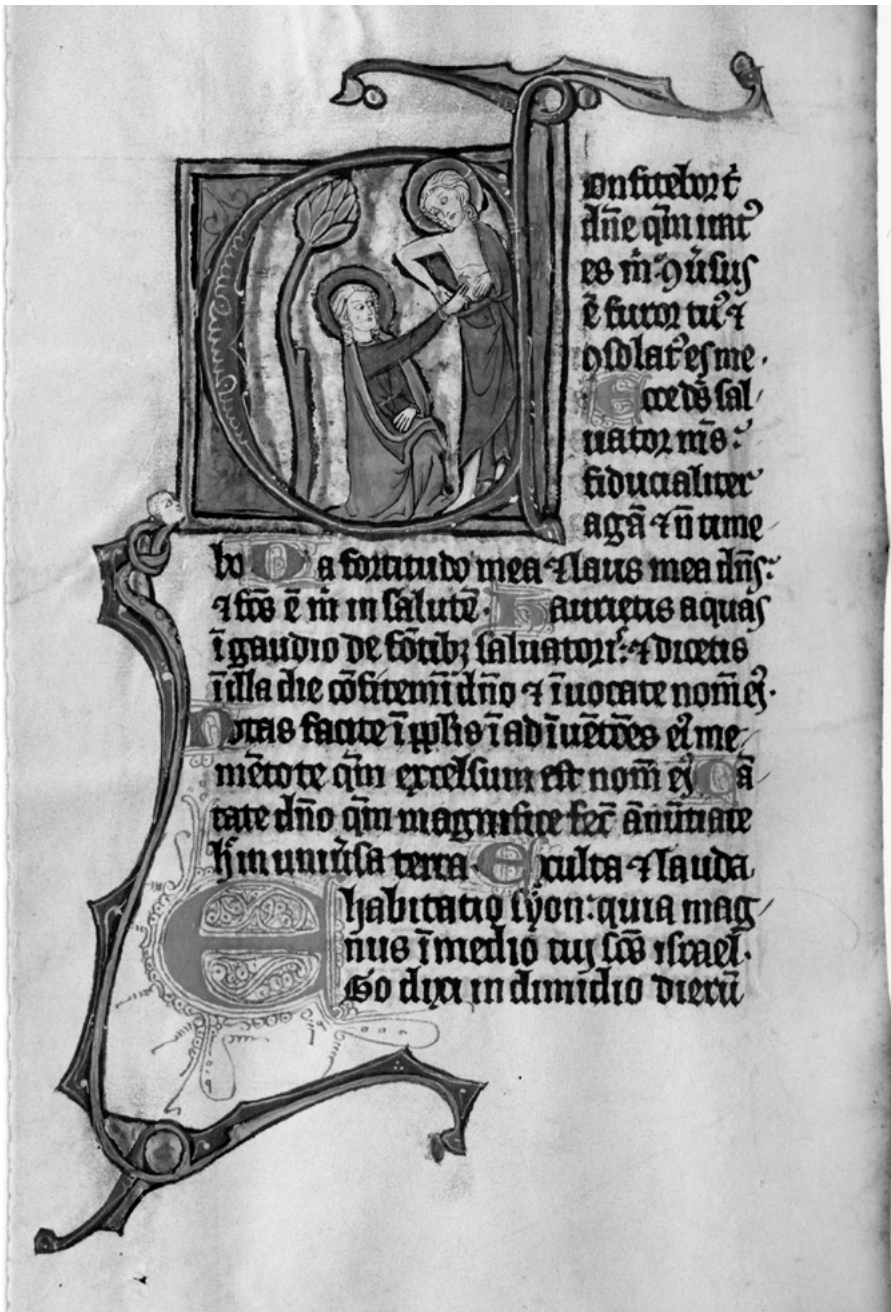 Confitebor t̄
dn̄e qm̄ iratꝰ
es m̄: ꝯūsus
ē furor tuꝰ ⁊
ꝯsolatꝰ es me.
Ecce ds̄ sal
uator ms̄:
fiducialiter
agā ⁊ n̄ time
bo Qa fortitudo mea ⁊ laus mea dn̄s:
⁊ fcs̄ ē m̄ in salutē. Haurietis aquas
ī gaudio de fōtibꝫ saluatorꝭ: ⁊ dicetis
ī illa die cōfitemī dn̄o ⁊ īuocate nom̄ eꝰ.
Notas facite ī ppl̄is īadīuētōes eꝰ me
mētote qm̄ excelsum est nom̄ eꝰ Cā
tate dn̄o qm̄ magnifice fec̄ ānūtiate
h̄ in uniūsa terra. Exulta ⁊ lauda
habitatio syon: quia mag
nus ī medio tuj scs̄ israel.
Ego dixi in dimidio dierū